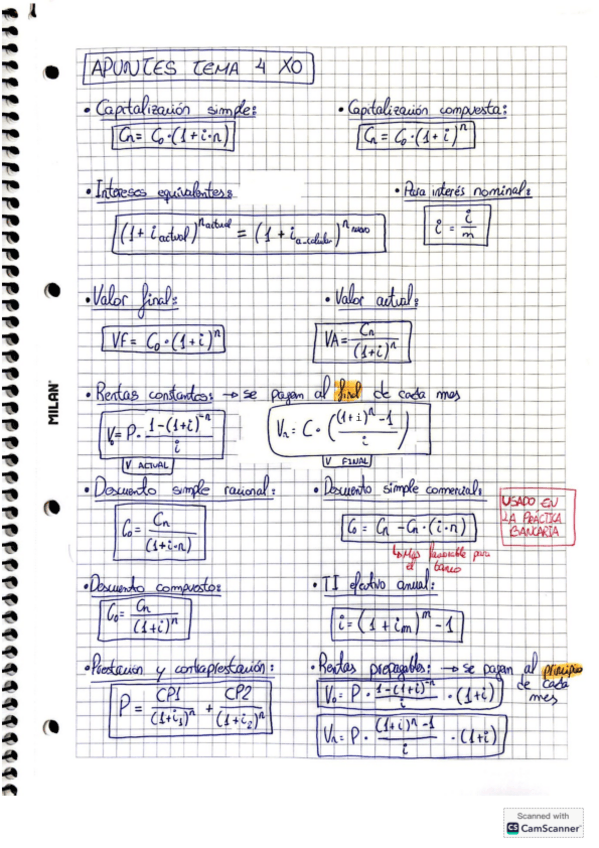 APUNTES TEMA 4 XO
• Capitalización simple:
Cn = C₀·(1+i·n)
• Capitalización compuesta:
Cn = C₀·(1+i)ⁿ
• Intereses equivalentes:
(1+i actual)^n actual = (1+i a_calcular)^n nuevo
• Para interés nominal:
i = i/m
• Valor final:
VF = C₀·(1+i)ⁿ
• Valor actual:
VA = Cn/(1+i)ⁿ
• Rentas constantes: → se pagan al final de cada mes
V₀ = P· (1-(1+i)⁻ⁿ)/i
V ACTUAL
Vn = C·(((1+i)ⁿ-1)/i)
V FINAL
• Descuento simple racional:
C₀ = Cn/(1+i·n)
• Descuento simple comercial:
C₀ = Cn - Cn·(i·n)
↳ Más favorable para
el banco
USADO EN
LA PRÁCTICA
BANCARIA
• Descuento compuesto:
C₀ = Cn/(1+i)ⁿ
• TI efectivo anual:
i = (1+im)^m - 1
• Prestación y contraprestación:
P = CP1/(1+i₁)ⁿ + CP2/(1+i₂)ⁿ
• Rentas prepagables: → se pagan al principio
de cada
mes
V₀ = P· (1-(1+i)⁻ⁿ)/i ·(1+i)
Vn = P· ((1+i)ⁿ-1)/i ·(1+i)
MILAN
Scanned with
CS CamScanner